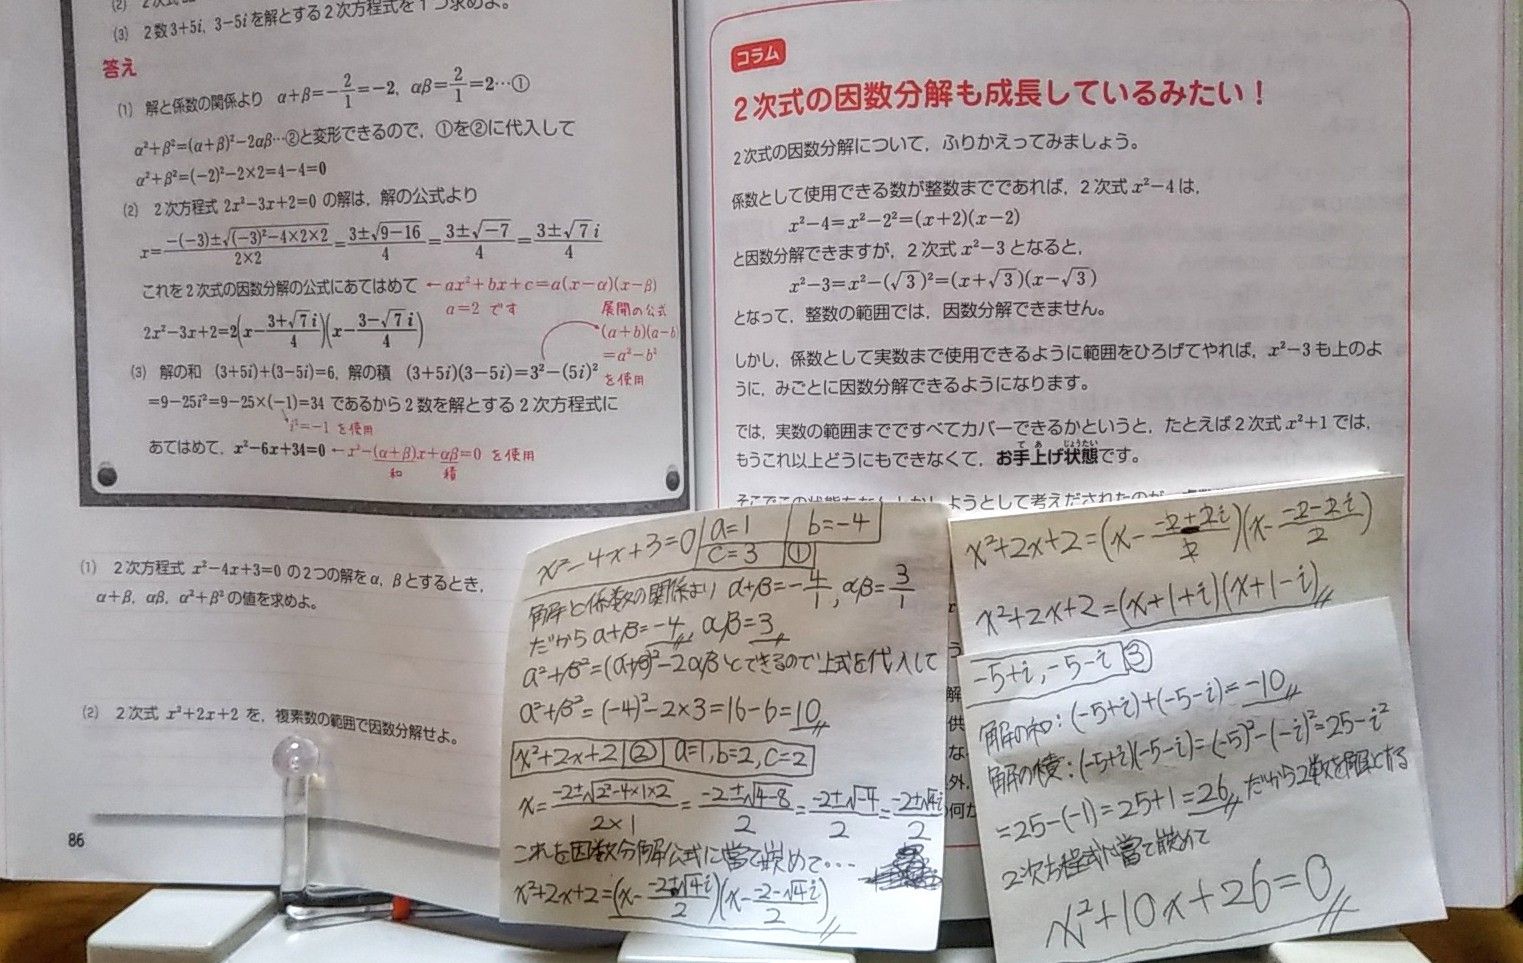 (3) 2数3+5i, 3−5iを解とする2次方程式を1つ求めよ。
答え
(1) 解と係数の関係より α+β=−2/1=−2, αβ=2/1=2…①
α²+β²=(α+β)²−2αβ…②と変形できるので, ①を②に代入して
α²+β²=(−2)²−2×2=4−4=0
(2) 2次方程式 2x²−3x+2=0 の解は, 解の公式より
x=−(−3)±√(−3)²−4×2×2/2×2=3±√9−16/4=3±√−7/4=3±√7 i/4
これを2次式の因数分解の公式にあてはめて ←ax²+bx+c=a(x−α)(x−β)
a=2 です
展開の公式
(a+b)(a−b)
=a²−b²
を使用
2x²−3x+2=2(x−3+√7 i/4)(x−3−√7 i/4)
(3) 解の和 (3+5i)+(3−5i)=6, 解の積 (3+5i)(3−5i)=3²−(5i)²
=9−25i²=9−25×(−1)=34 であるから2数を解とする2次方程式に
i²=−1 を使用
あてはめて, x²−6x+34=0 ←x²−(α+β)x+αβ=0 を使用
和 積
(1) 2次方程式 x²−4x+3=0 の2つの解をα, βとするとき,
α+β, αβ, α²+β² の値を求めよ。
(2) 2次式 x²+2x+2 を, 複素数の範囲で因数分解せよ。
86
コラム
2次式の因数分解も成長しているみたい！
2次式の因数分解について, ふりかえってみましょう。
係数として使用できる数が整数までであれば, 2次式 x²−4は,
x²−4=x²−2²=(x+2)(x−2)
と因数分解できますが, 2次式 x²−3となると,
x²−3=x²−(√3)²=(x+√3)(x−√3)
となって, 整数の範囲では, 因数分解できません。
しかし, 係数として実数まで使用できるように範囲をひろげてやれば, x²−3も上のよ
うに, みごとに因数分解できるようになります。
では, 実数の範囲までですべてカバーできるかというと, たとえば2次式 x²+1では,
もうこれ以上どうにもできなくて, お手上げ状態です。
x²−4x+3=0 a=1 b=−4
c=3 ①
解と係数の関係より α+β=−4/1, αβ=3/1
だから α+β=−4 αβ=3
α²+β²=(α+β)²−2αβとできるので上式を代入して
α²+β²=(−4)²−2×3=16−6=10
x²+2x+2 ② a=1, b=2, c=2
x=−2±√2²−4×1×2/2×1=−2±√4−8/2=−2±√−4/2=−2±√4i/2
これを因数分解公式に当て嵌めて…
x²+2x+2=(x−−2+√4i/2)(x−−2−√4i/2)
x²+2x+2=(x−−2+2i/2)(x−−2−2i/2)
x²+2x+2=(x+1+i)(x+1−i)
−5+i, −5−i ③
解の和:(−5+i)+(−5−i)=−10
解の積:(−5+i)(−5−i)=(−5)²−(−i)²=25−i²
=25−(−1)=25+1=26 だから2数を解とする
2次方程式に当て嵌めて
x²+10x+26=0